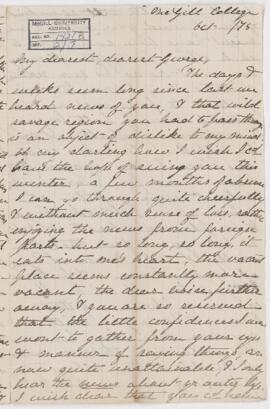 McGill College
Oct /75
McGILL UNIVERSITY
ARCHIVES
ACC. NO.
REF.
My dearest, dearest George,
The days &
weeks seem long since last we
heard news of you, & that wild
savage region you had to pass through
is an object of dislike to my mind
oh my darling how I wish I cd
have the hope of seeing you this
winter a few months of absence
I can go through quite cheerfully
& without much sense of loss, rather
enjoying the news from foreign
parts, but so long, so long, it
eats into one's heart, the vacant
place seems constantly more
vacant, the dear voice further
away, & you are so reserved
that the little confidences I am
wont to gather from your eyes
& manner of saying things, are
now quite unattainable, & I only
hear the news about yr
I wish dear that